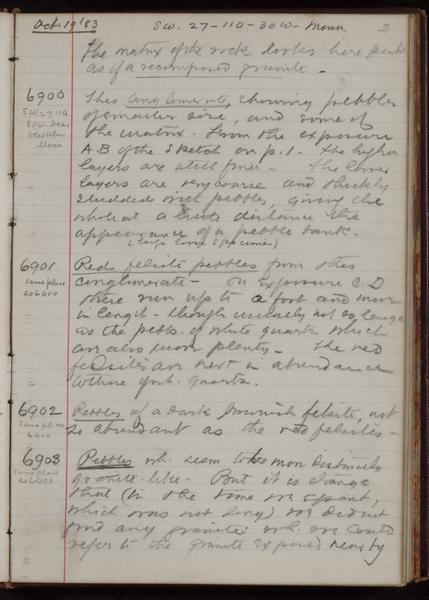 Oct. 19 '83 S.W. 27-110-30W- Minn. 2
The matrix of the rock looks here much
as if a recomposed granite.
6900 This conglomerate, showing pebbles
S.W. 27, 110
of smaller size, and some of
30W. near
the matrix. From the exposure
New Ulm
Minn
A B of the sketch on p. 1. The higher
layers are still finer. The lower
layers are very coarse and thickly
studded with pebbles, giving the
whole at a little distance the
appearance of a pebble bank.
(large specimen)
6901 Red felsite pebbles from this
same place
conglomerate - On exposure C D
as 6900
these run up to a foot and more
in length - though usually not so large
as the pebb. of white quartz which
are also more plenty - The red
felsites are next in abundance
to the quartz.
6902 Pebbles of a dark brownish felsite, not
same pl. as
6900
so abundant as the red felsites -
6903 Pebbles wh. seem to be more distinctly
same place
as 6900.
granite-like. But it is strange
that (in the time we spent,
which was not long) we did not
find any granites wh. we could
refer to the granite exposed near by